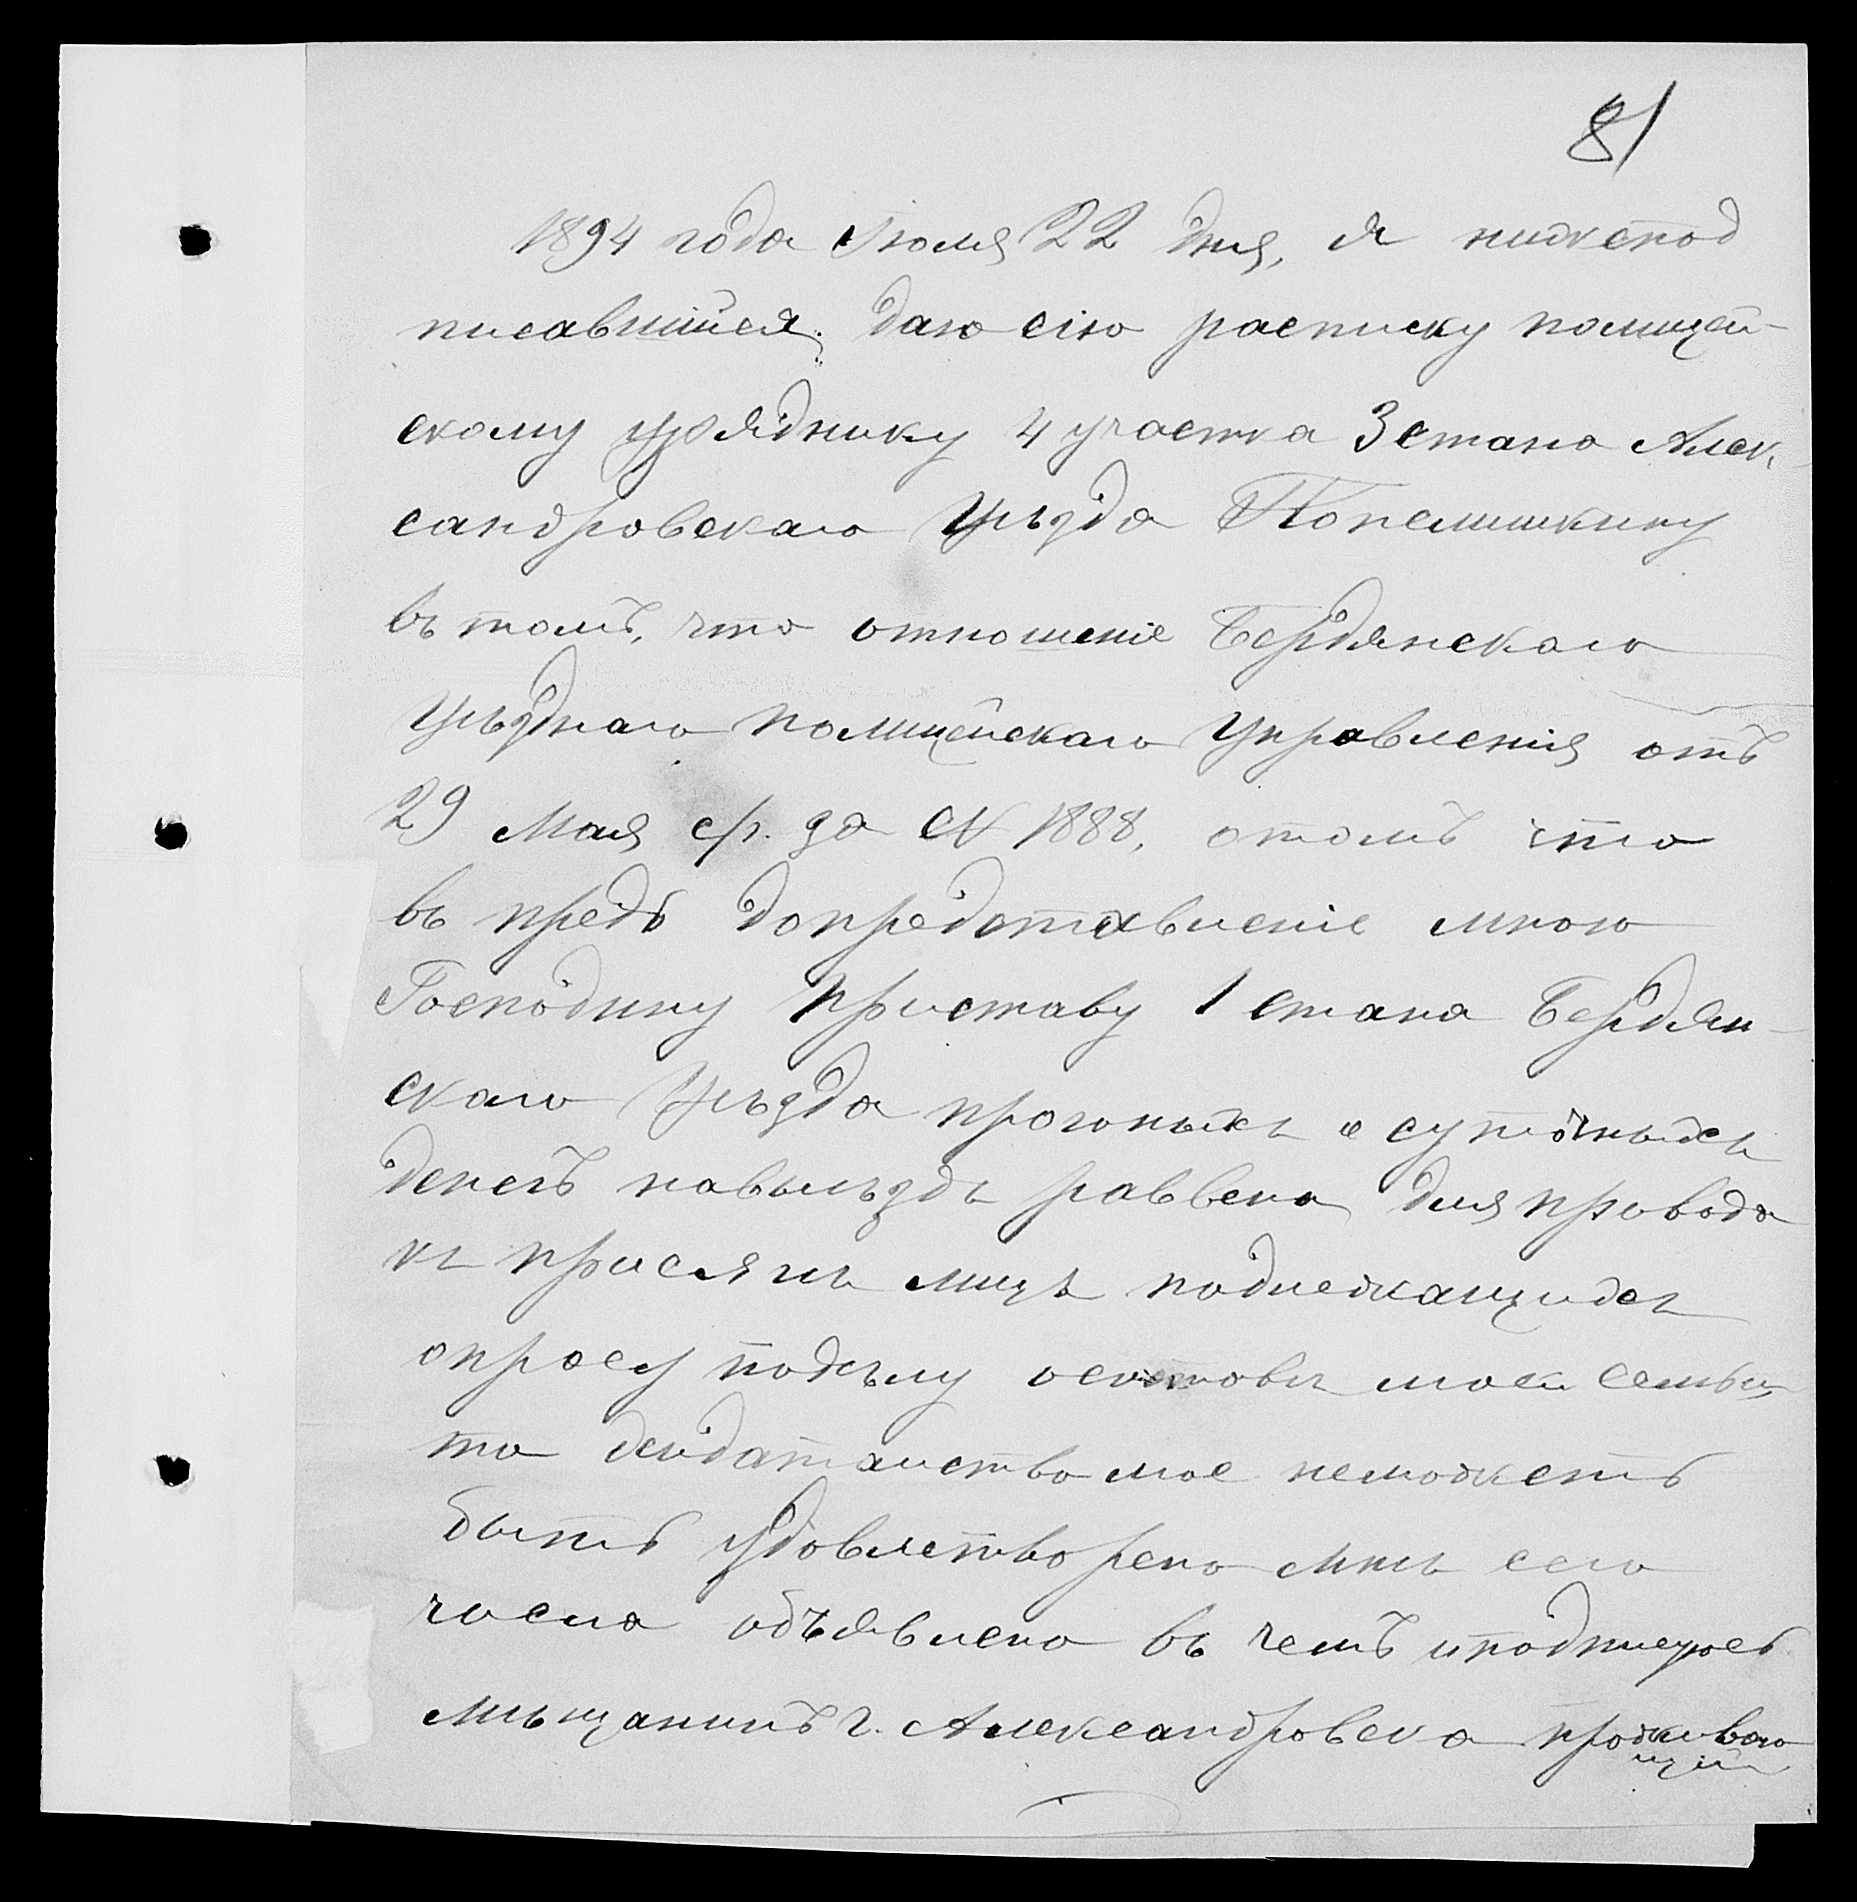 81
1894 года Июля 22 дня, я нижепод
писавшійся даю сію расписку полицей-
скому уряднику 4 участка 3 стана Алек-
сандровскаго Уѣзда
въ томъ, что отношеніе Бердянскаго
Уѣзднаго полицейскаго Управленія отъ
29 Мая с/г. за № 1888, отомъ что
въ предь допредставленіе мною
Господину Приставу 1 стана Бердян-
скаго Уѣзда прогоныхъ и суточныхъ
денегъ навыѣздъ раввена для привода
къ присягѣ лицъ подлежащихъ
опросу подѣлу осоставѣ моей семьи,
то ходатайство мое неможетъ
быть удовлетворено мнѣ сего
числа объявлено въ чемъ иподписуюсь
мѣщанинъ г. Александровска проживаю
щій